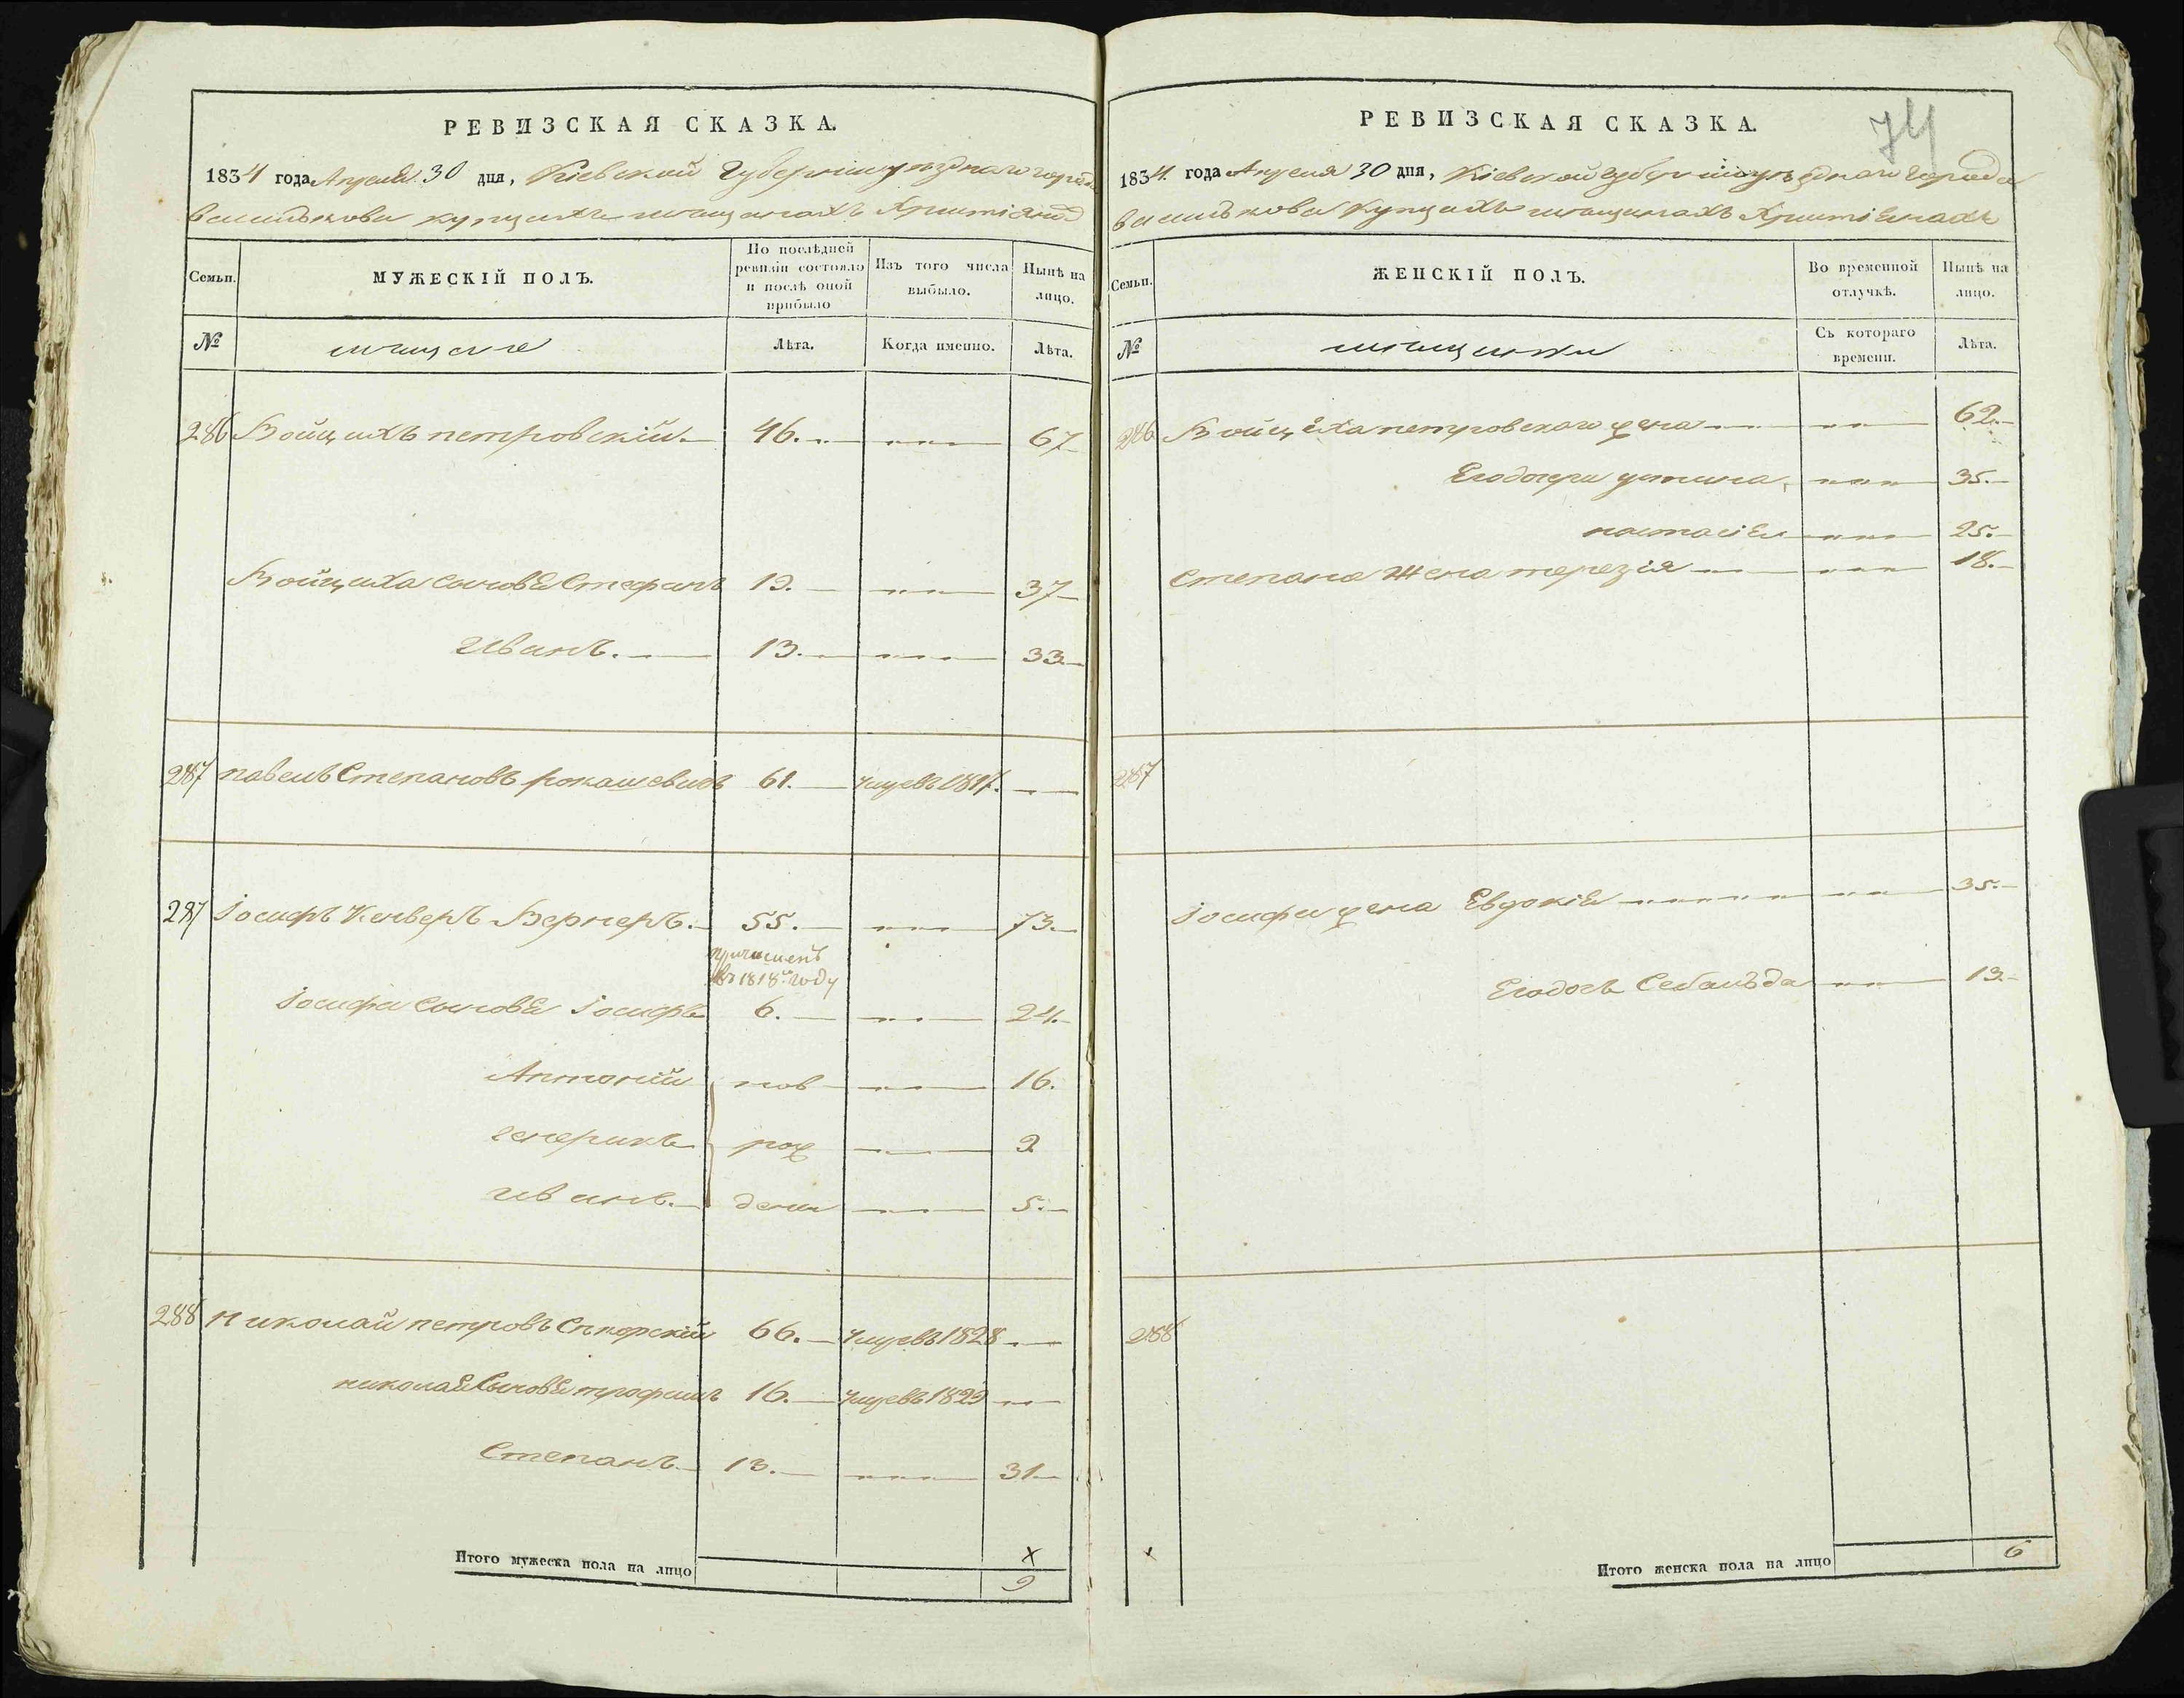 РЕВИЗСКАЯ СКАЗКА.
1834 года Апреля 30 дня, Кіевской Губерніи уезднаго города
василькова купцахъ мещанахъ Христіянъ
Семьи. МУЖЕСКІЙ ПОЛЪ. По послѣдней ревизіи состояло и послѣ оной прибыло Изъ того числа выбыло. Нынѣ на лицо.
№ мещане Лѣта. Когда именно. Лѣта.
286 Войцихъ петровскій. 46. 67
Войциха сыновя Стефанъ 19. 37
Иванъ. 13. 33
287 павелъ Степановъ рокашевичъ 61. умре въ 1817.
287 Іосифъ Кенверъ Вернеръ. 55. 73.
причисленъ
въ 1818м году
Іосифа сыновя Іосифъ 6. 24.
Антоній нов 16.
генерикъ рож 9
Иванъ. дени 5.
288 николай петровъ Сикорскій 66. умре въ 1828
николая Сыновя трофимъ 16. умре въ 1829
Степанъ. 13. 31
Итого мужеска пола на лицо х
9
74
РЕВИЗСКАЯ СКАЗКА.
1834. года Апреля 30 дня, Кіевской губерніи уѣзднаго города
василькова Купцахъ мещанахъ Христіянахъ
Семьи. ЖЕНСКІЙ ПОЛЪ. Во временной отлучкѣ. Нынѣ на лицо.
№ мещанки Съ котораго времени. Лѣта.
286 Войцеха петровскаго жена 62.
Его дочери устина, 35.
настасія 25.
Степана Жена терезія 18.
287
Іосифа жена Евдокія 35.
Его дочь Себальда 13.
288
х
Итого женска пола на лицо 6